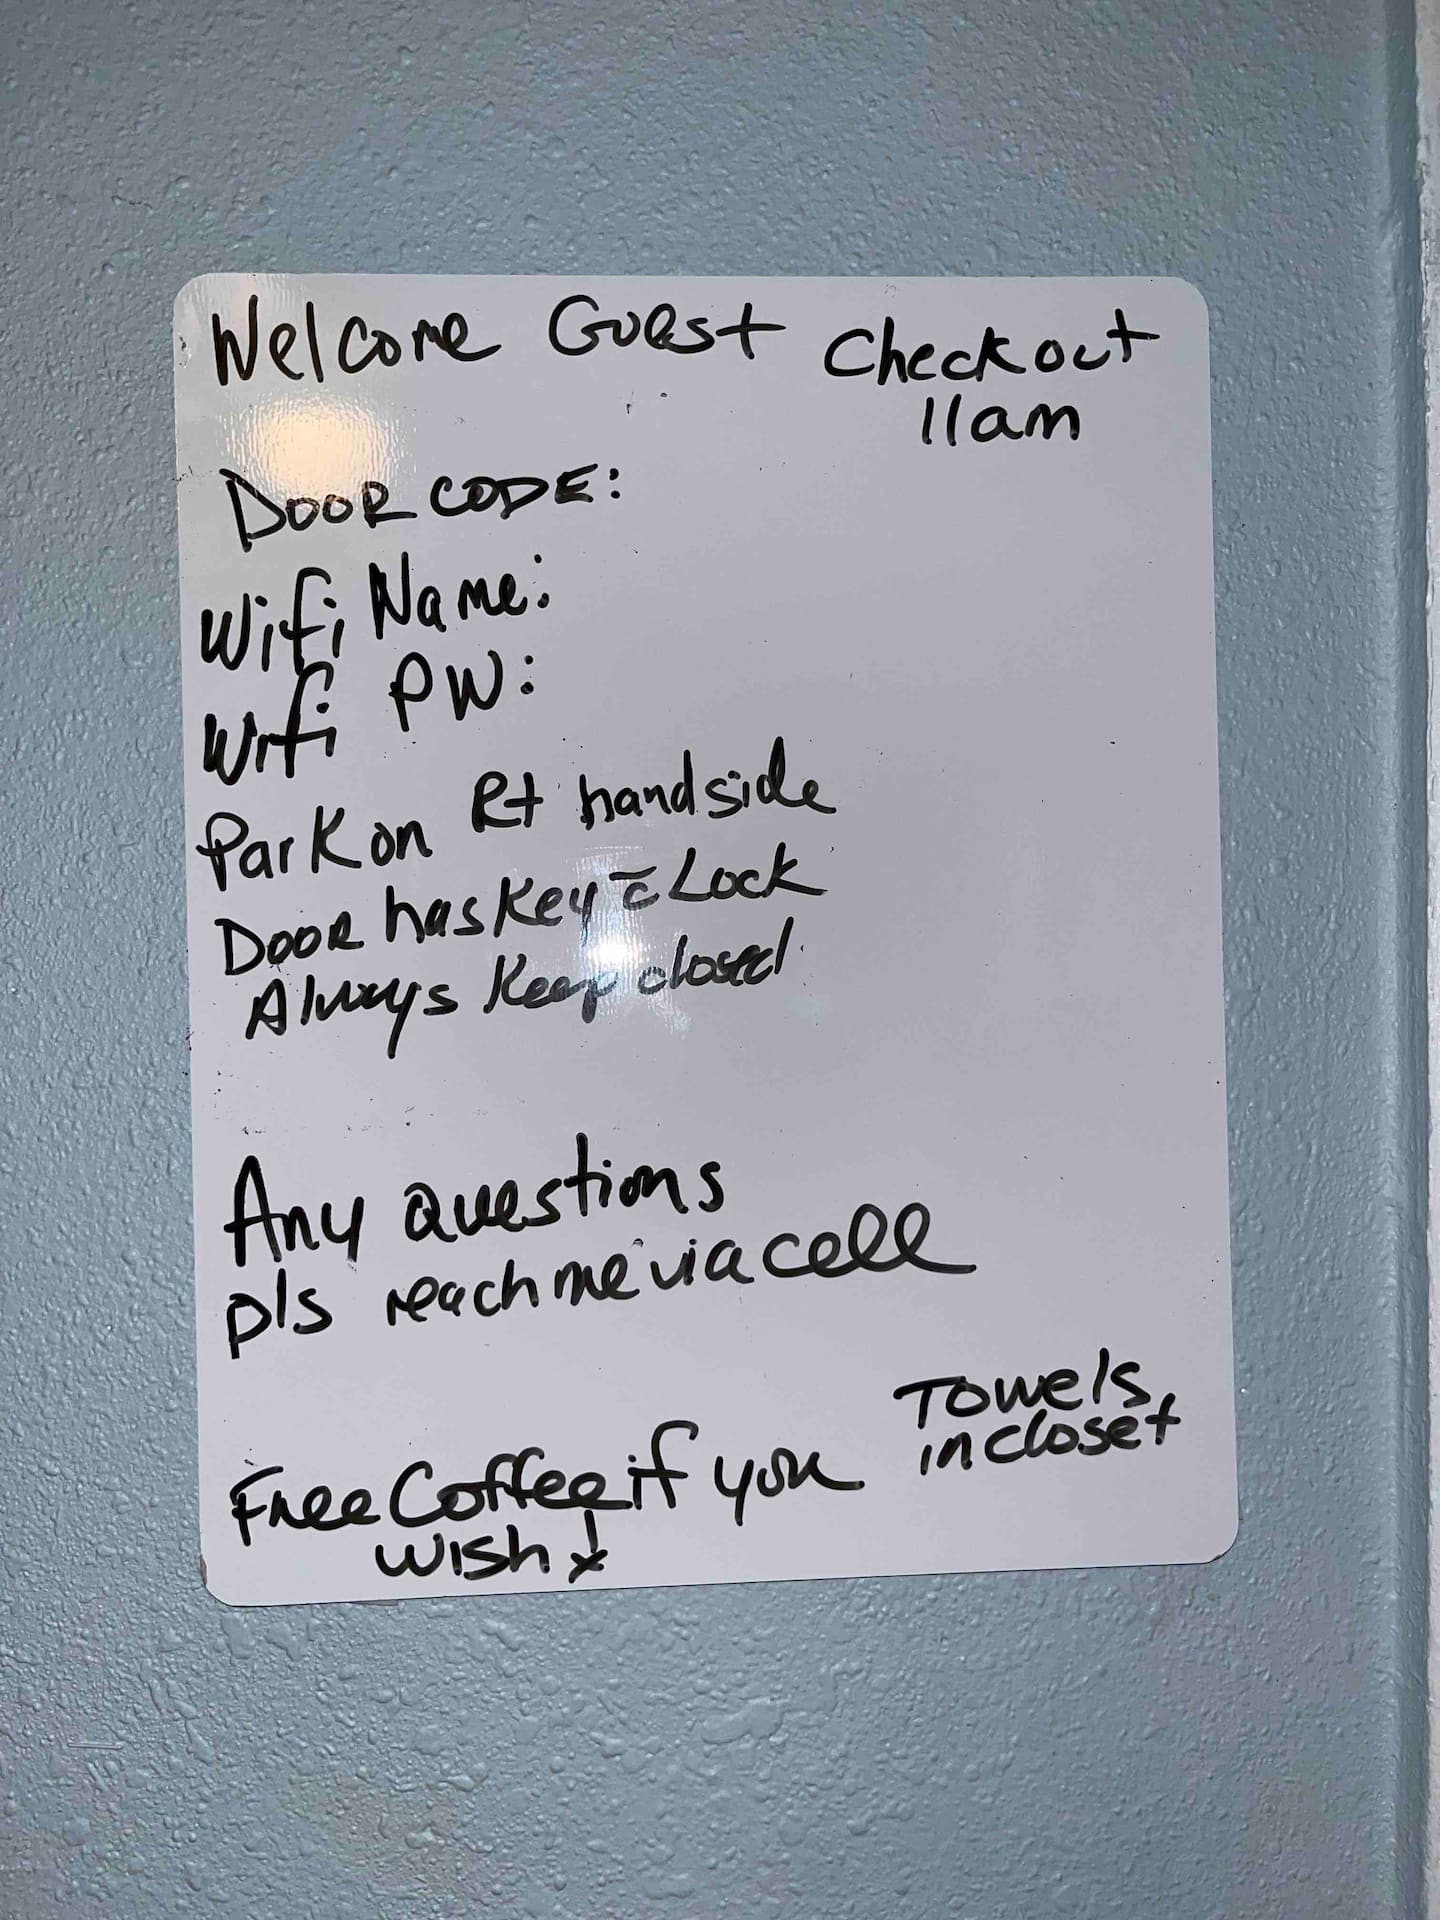 Welcome Guest
Checkout
11am
DOOR CODE:
Wifi Name:
Wifi PW:
Park on Rt hand side
DOOR has Key c̄ Lock
Always Keep closed
Any questions
pls reach me via cell
Towels
in closet
Free Coffee if you
wish!